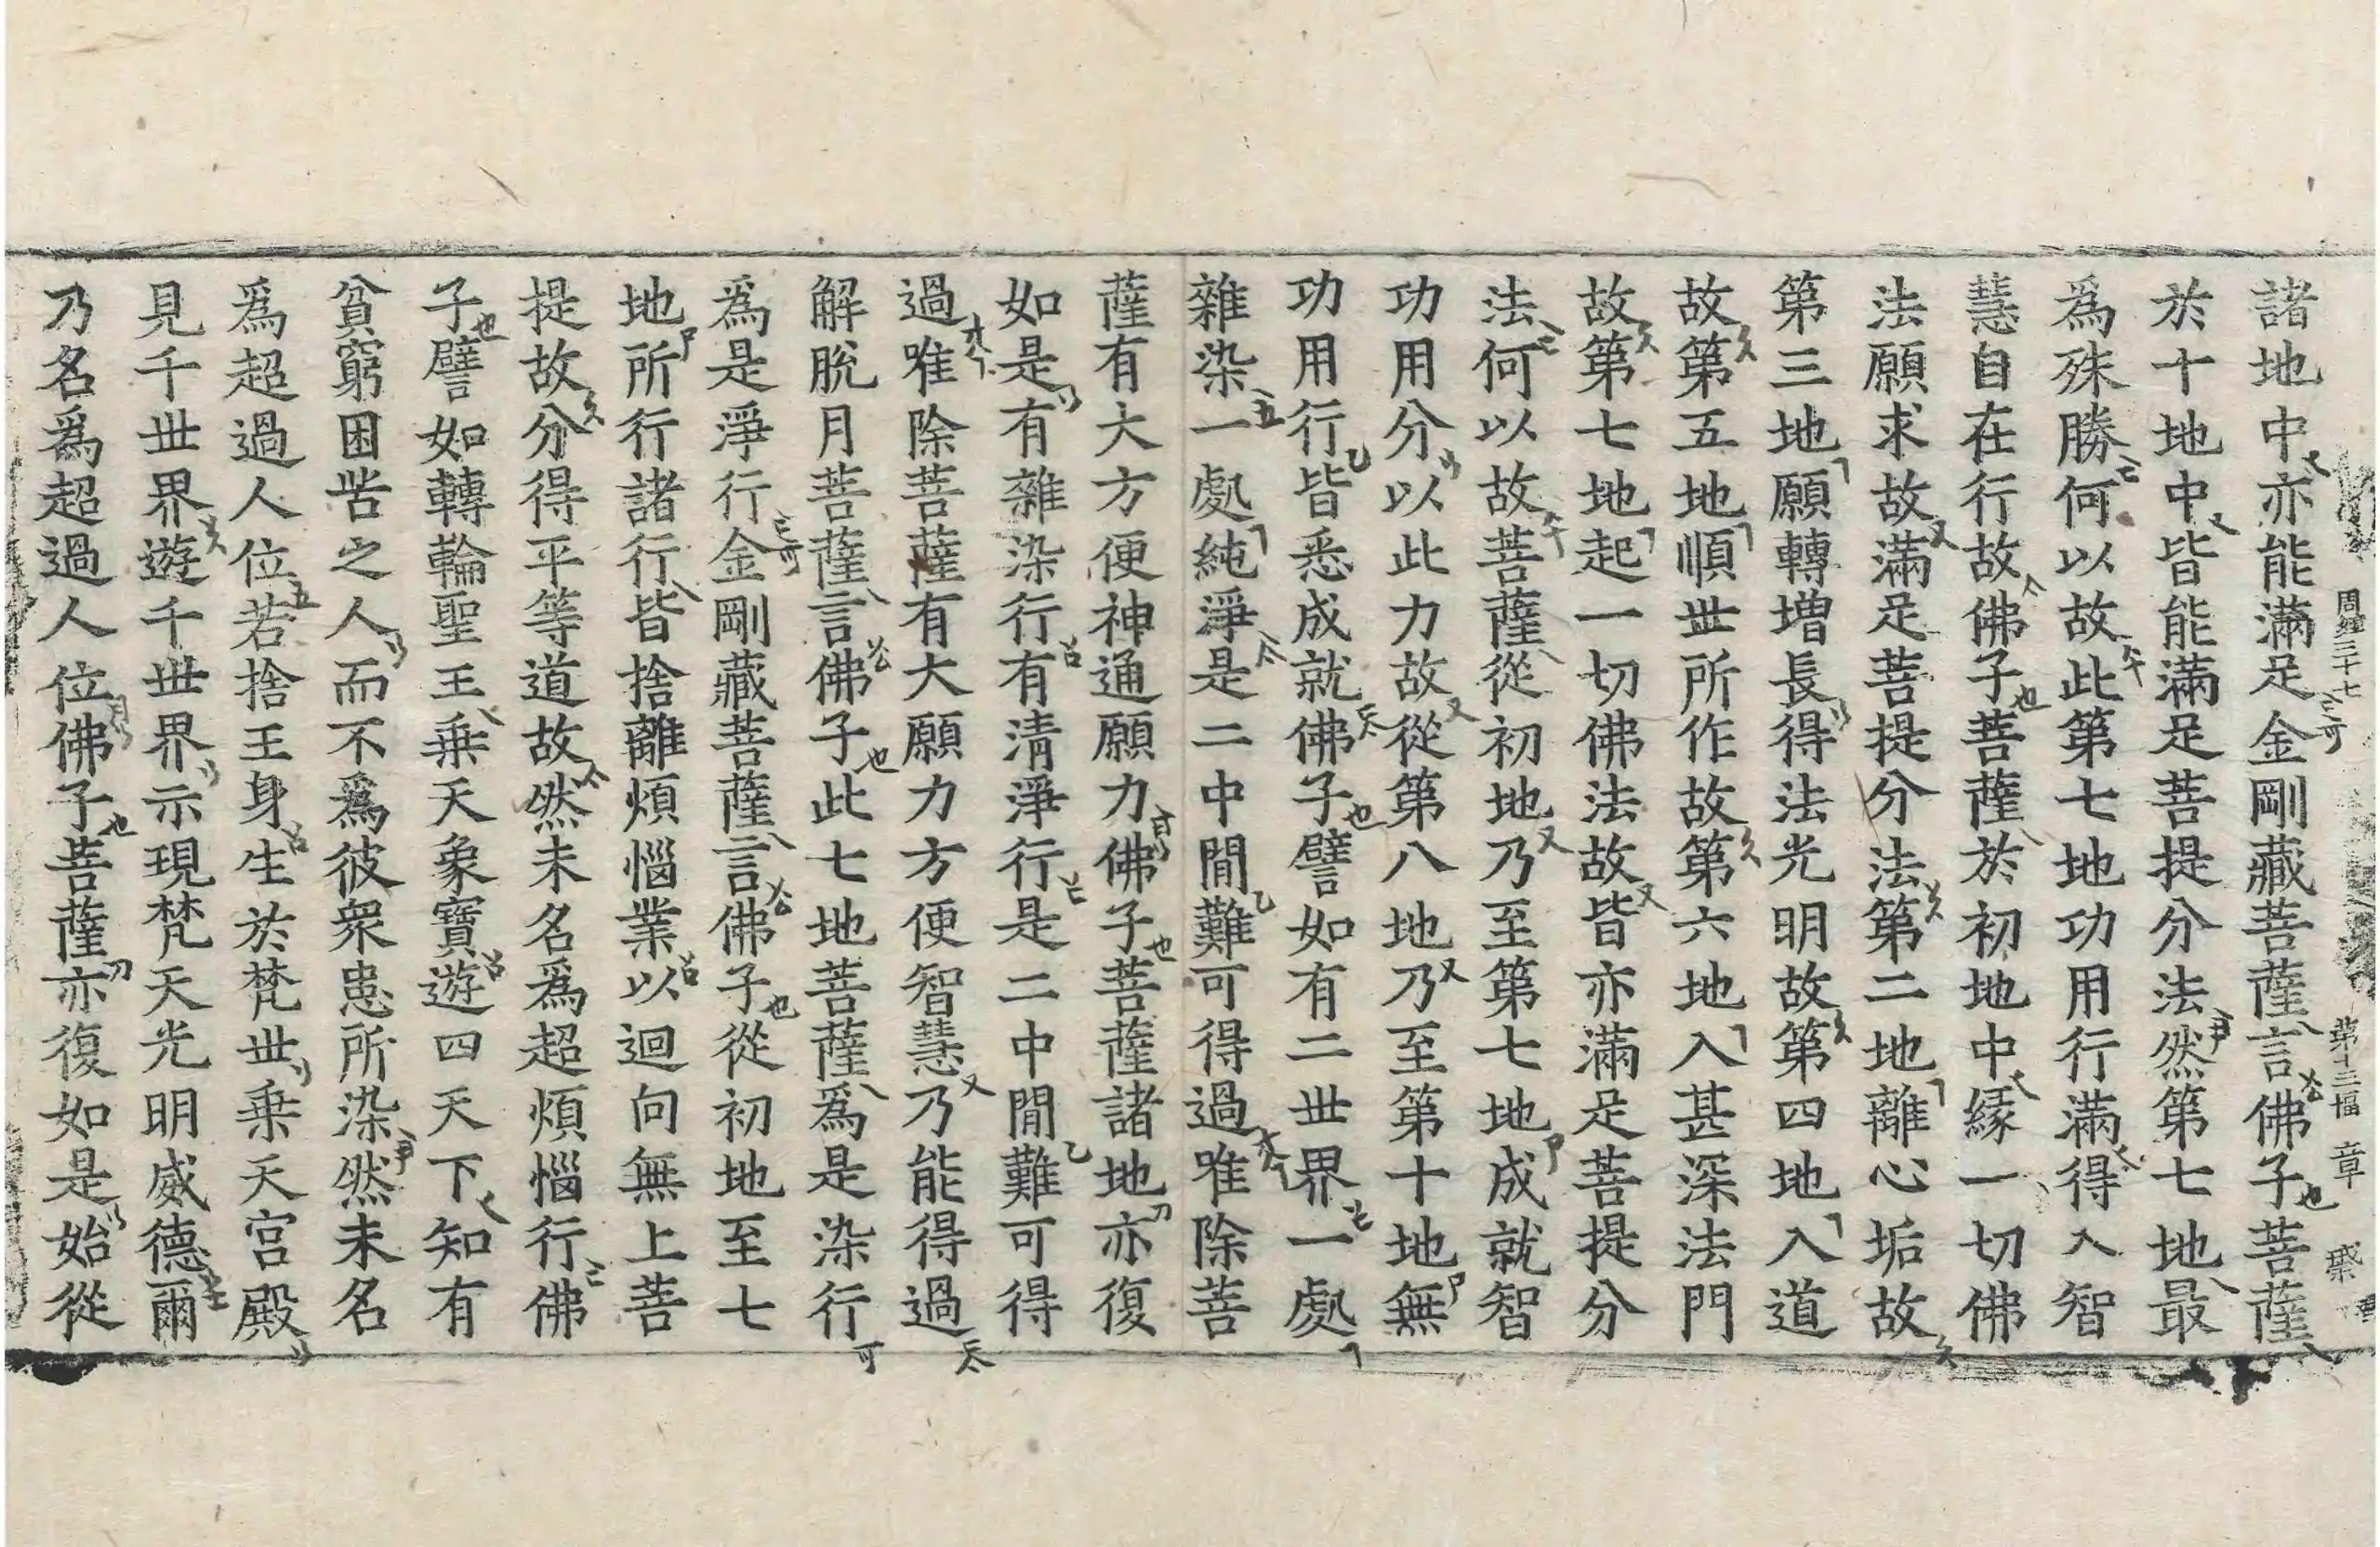 周經三十七 第十三幅 章
諸地中亦能滿足金剛藏菩薩言佛子菩薩
於十地中皆能滿足菩提分法然第七地最
爲殊勝何以故此第七地功用行滿得入智
慧自在行故佛子菩薩於初地中緣一切佛
法願求故滿足菩提分法第二地離心垢故
第三地願轉增長得法光明故第四地入道
故第五地順丗所作故第六地入甚深法門
故第七地起一切佛法故皆亦滿足菩提分
法何以故菩薩從初地乃至第七地成就智
功用分以此力故從第八地乃至第十地無
功用行皆悉成就佛子譬如有二丗界一處
雜染一處純淨是二中間難可得過唯除菩
薩有大方便神通願力佛子菩薩諸地亦復
如是有雜染行有清淨行是二中間難可得
過唯除菩薩有大願力方便智慧乃能得過
解脫月菩薩言佛子此七地菩薩爲是染行
爲是淨行金剛藏菩薩言佛子從初地至七
地所行諸行皆捨離煩惱業以迴向無上菩
提故分得平等道故然未名爲超煩惱行佛
子譬如轉輪聖王乗天象寶遊四天下知有
貧窮困苦之人而不爲彼衆患所染然未名
爲超過人位若捨王身生於梵丗乗天宮殿
見千丗界遊千丗界示現梵天光明威德爾
乃名爲超過人位佛子菩薩亦復如是始從